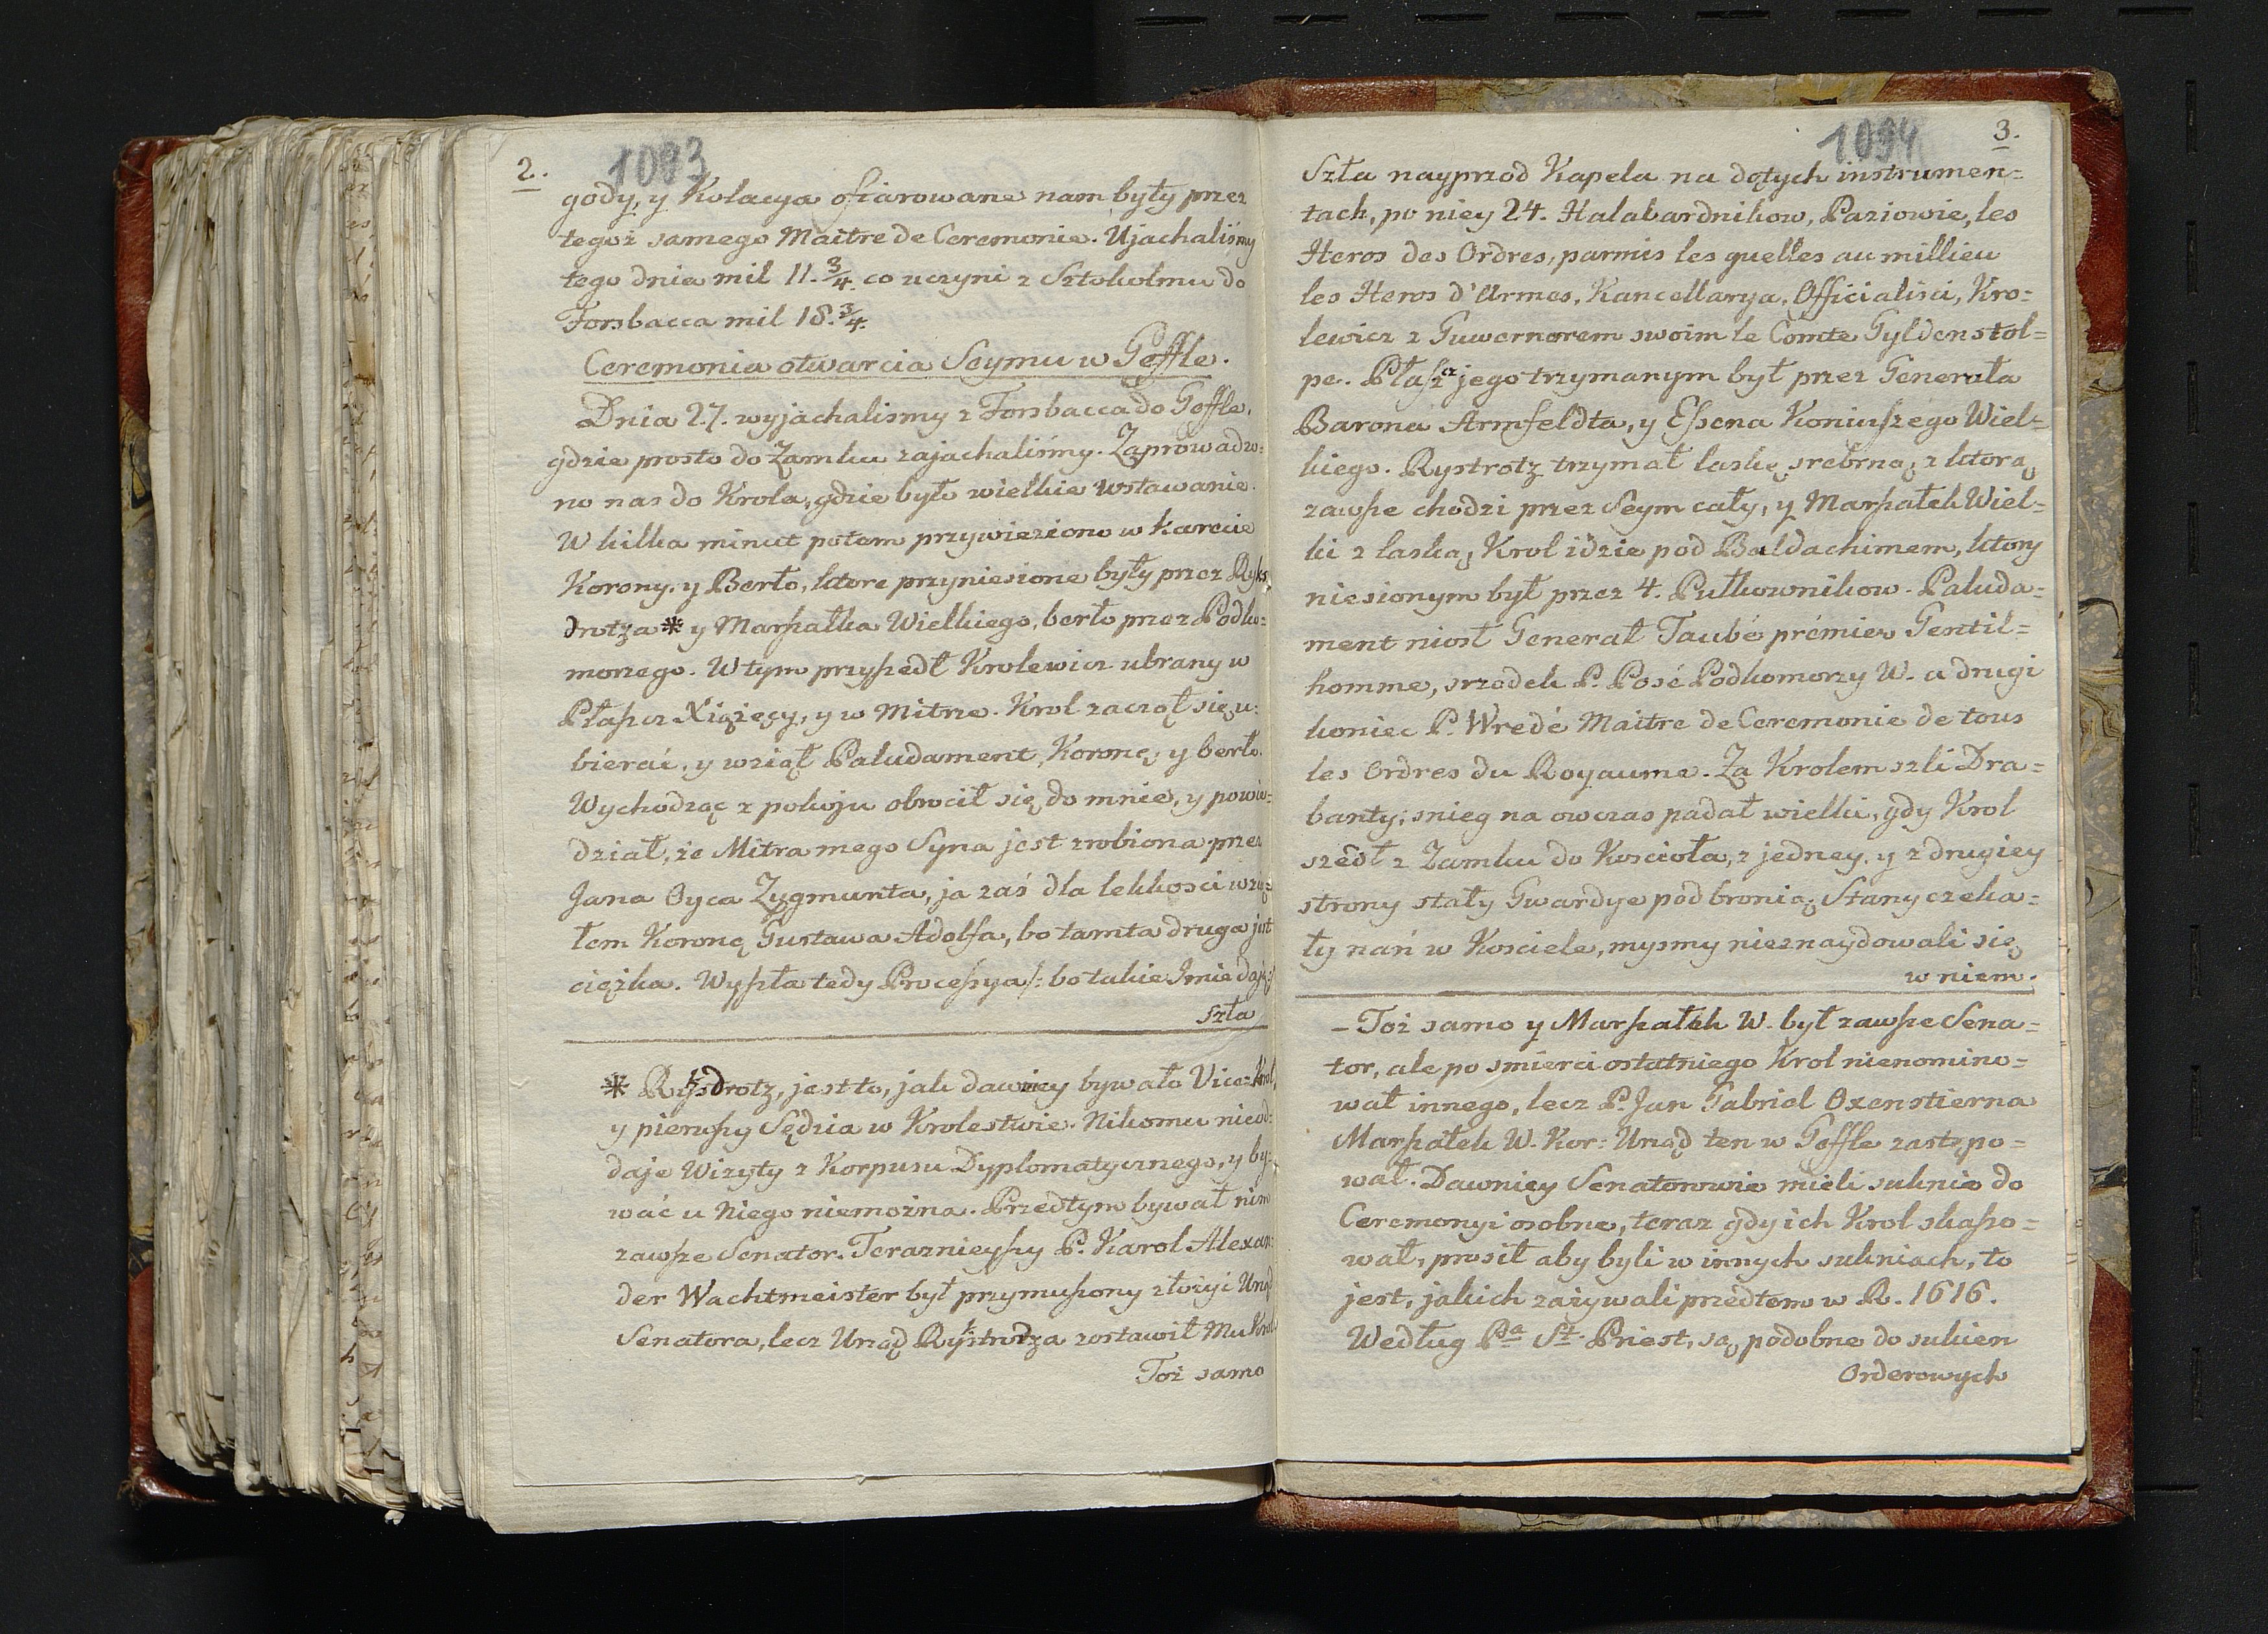 2. 1093
gody, y Kolacya ofiarowane nam były przez
tegoż samego Maitre de Ceremonie. Ujachaliśmy
tego dnia mil 11. 3/4. co uczyni z Sztokolmu do
Forsbacca mil 18. 3/4.
Ceremonia otwarcia Seymu w Geffle.
Dnia 27. wyjachalismy z Forsbacca do Geffle,
gdzie prosto do Zamku zajachaliśmy. Zaprowadzo=
no nas do Krola, gdzie było wielkie wstawanie.
W kilka minut potem przywieziono w karecie
Korony. y Berło, ktore przyniesione były przez Ryks
drotza * y Marszałka Wielkiego, berło przez Podko=
morzego. W tym przyszedł Krolewicz ubrany w
Płaszcz Xiążęcy, y w Mitrze. Krol zaczął się u=
bierać, y wziął Paludament, Koronę, y berło.
Wychodząc z pokoju obrocił się do mnie, y powie=
dział, że Mitra mego Syna jest zrobiona przez
Jana Oyca Zygmunta, ja zaś dla lekkosci wzią=
łem Koronę Gustawa Adolfa, bo tamta druga jest
ciężka. Wyszła tedy Processya /: bo takie Imie dają :/
szła
* Ryksdrotz, jest to, jak dawniey bywało Vice-Krol,
y pierwszy Sędzia w Krolestwie. Nikomu nieod=
daje Wizyty z Korpusu Dyplomatycznego, y by=
wać u Niego niemożna. Przedtym bywał nim
zawsze Senator. Teraznieyszy P. Karol Alexan=
der Wachtmeister był przymuszony złożyć Urząd
Senatora, lecz Urząd Rykstrodza zostawił Mu Krol.
Toż samo
1094 3.
Szła nayprzod Kapela na dętych instrumen=
tach, po niey 24. Halabardnikow, Paziowie, les
Heros des Ordres, parmis les quelles au millieu
les Heros d'Armes, Kancellarya, Officialisci, Kro=
lewicz z Guwernorem swoim le Comte Gyldenstol=
pe. Płaszcz jego trzymanym był przez Generała
Barona Armfeldta, y Essena Koniuszego Wiel=
kiego. Rystrotz trzymał laskę srebrną, z ktorą
zawsze chodzi przez Seym cały, y Marszałek Wiel=
ki z laską, Krol idzie pod Baldachimem, ktory
niesionym był przez 4. Pułkownikow. Paluda=
ment niosł Generał Taubé prémier Gentil=
homme, srzodek P. Posé Podkomorzy W. a drugi
koniec P. Wredé Maitre de Ceremonie de tous
les Ordres du Royaume. Za Krolem szli Dra=
banty; snieg na owczas padał wielki, gdy Krol
szedł z Zamku do Kościoła, z jedney, y z drugiey
strony stały Gwardye pod bronią; Stany czeka=
ły nań w Kosciele, mysmy nieznaydowali się
w niem.
– Toż samo y Marszałek W. był zawsze Sena=
tor, ale po smierci ostatniego Krol nienomino=
wał innego, lecz P. Jan Gabriel Oxenstierna
Marszałek W. Kor: Urząd ten w Geffle zastępo=
wał. Dawniey Senatorowie mieli suknie do
Ceremonyi osobne, teraz gdy ich Krol skasso=
wał, prosił aby byli w innych sukniach, to
jest, jakich zażywali przedtem w R. 1616.
Według Pa St Priest, są podobne do sukien
Orderowych